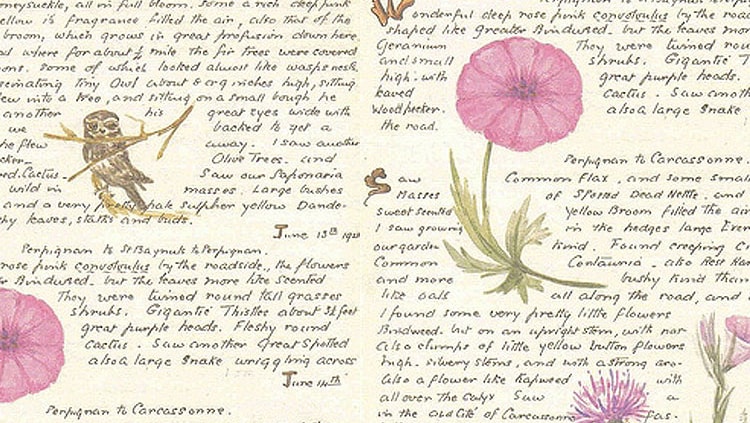 neysuckle, all in full bloom. Some a rich deep pink
yellow is fragrance filled the air, also that of the
broom, which grows in great profusion down here.
where for about ½ mile the fir trees were covered
Some of which looked almost like wasps nests.
scinating Tiny Owl about 8 inches high, sitting
flew into a tree, and sitting on a small bough he
another his great eyes wide with
we backed to get a
he flew away. I saw another
Olive Trees. and
rd. Cactus. Saw our Saponaria
wild in masses. Large bushes
and a very pretty pale Sulpher yellow Dande-
hy leaves, stalks and buds.
June 13th
Perpignan to St Baynuls to Perpignan.
rose pink convolvulus by the roadside, the flowers
Bindweed. but the leaves more like Scented
They were twined round Tall grasses
Shrubs. Gigantic Thistles about 5½ feet
great purple heads. Fleshy round
Cactus. Saw another Great Spotted
also a large Snake wriggling across
June 14th
Perpignan to Carcassonne.
Wonderful deep rose pink convolvulus by the road
shaped like Greater Bindweed. but the leaves more
Geranium They were twined rou
and small Shrubs. Gigantic T
high. with great purple heads.
leaved Cactus. Saw anoth
Woodpecker. also a large Snake
the road.
Perpignan to Carcassonne.
Saw Common Flax, and some small
Masses of Spotted Dead Nettle. and
Sweet Scented Yellow Broom filled the air
I saw growing in the hedges large Ever
our garden kind. Found creeping C
Common Centaurea. also Rest Har
and more bushy kind than
like oats all along the road, and
I found some very pretty little flowers
Bindweed. but on an upright stem, with nar
Also clumps of little yellow button flowers
high. silvery stems, and with a strong aro-
Also a flower like Knapweed with
all over the Calyx Saw a
in the old Cité of Carcassonne fas-